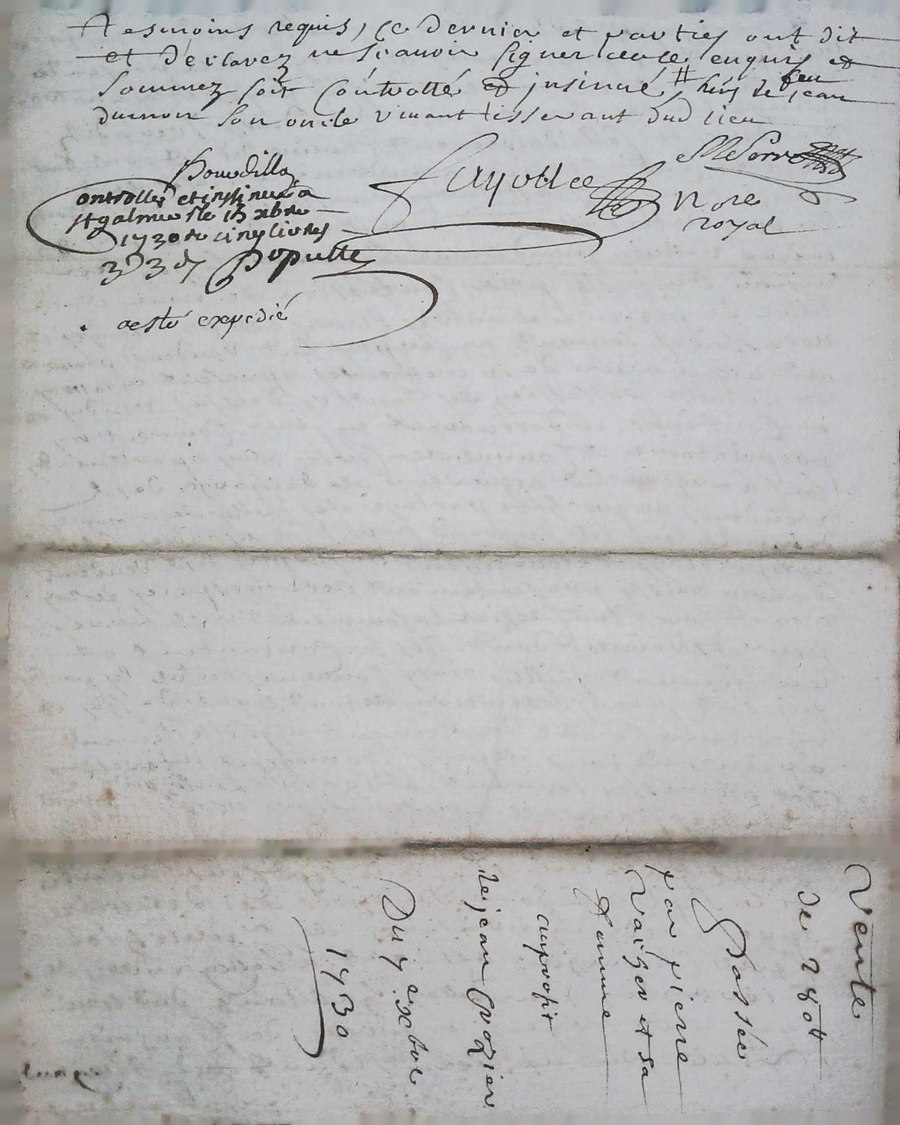 tesmoins requis, ce dernier et parties ont dit
et déclarez ne scavoir signer de ce enquis et
sommez soit Controllé et insinué # heus de feu jean
dumon son oncle vivant tisserant dud lieu
Bourdillo
ontrollé et insinué a
st galmier le xbre
1730 Rs cinq livres
Populle
Fayolle
Nore
royal
a esté expedié
Vente
de 280lt
Passée
par pierre
et sa
femme
au profit
de jean Crozier
Du 7e xbre
1730